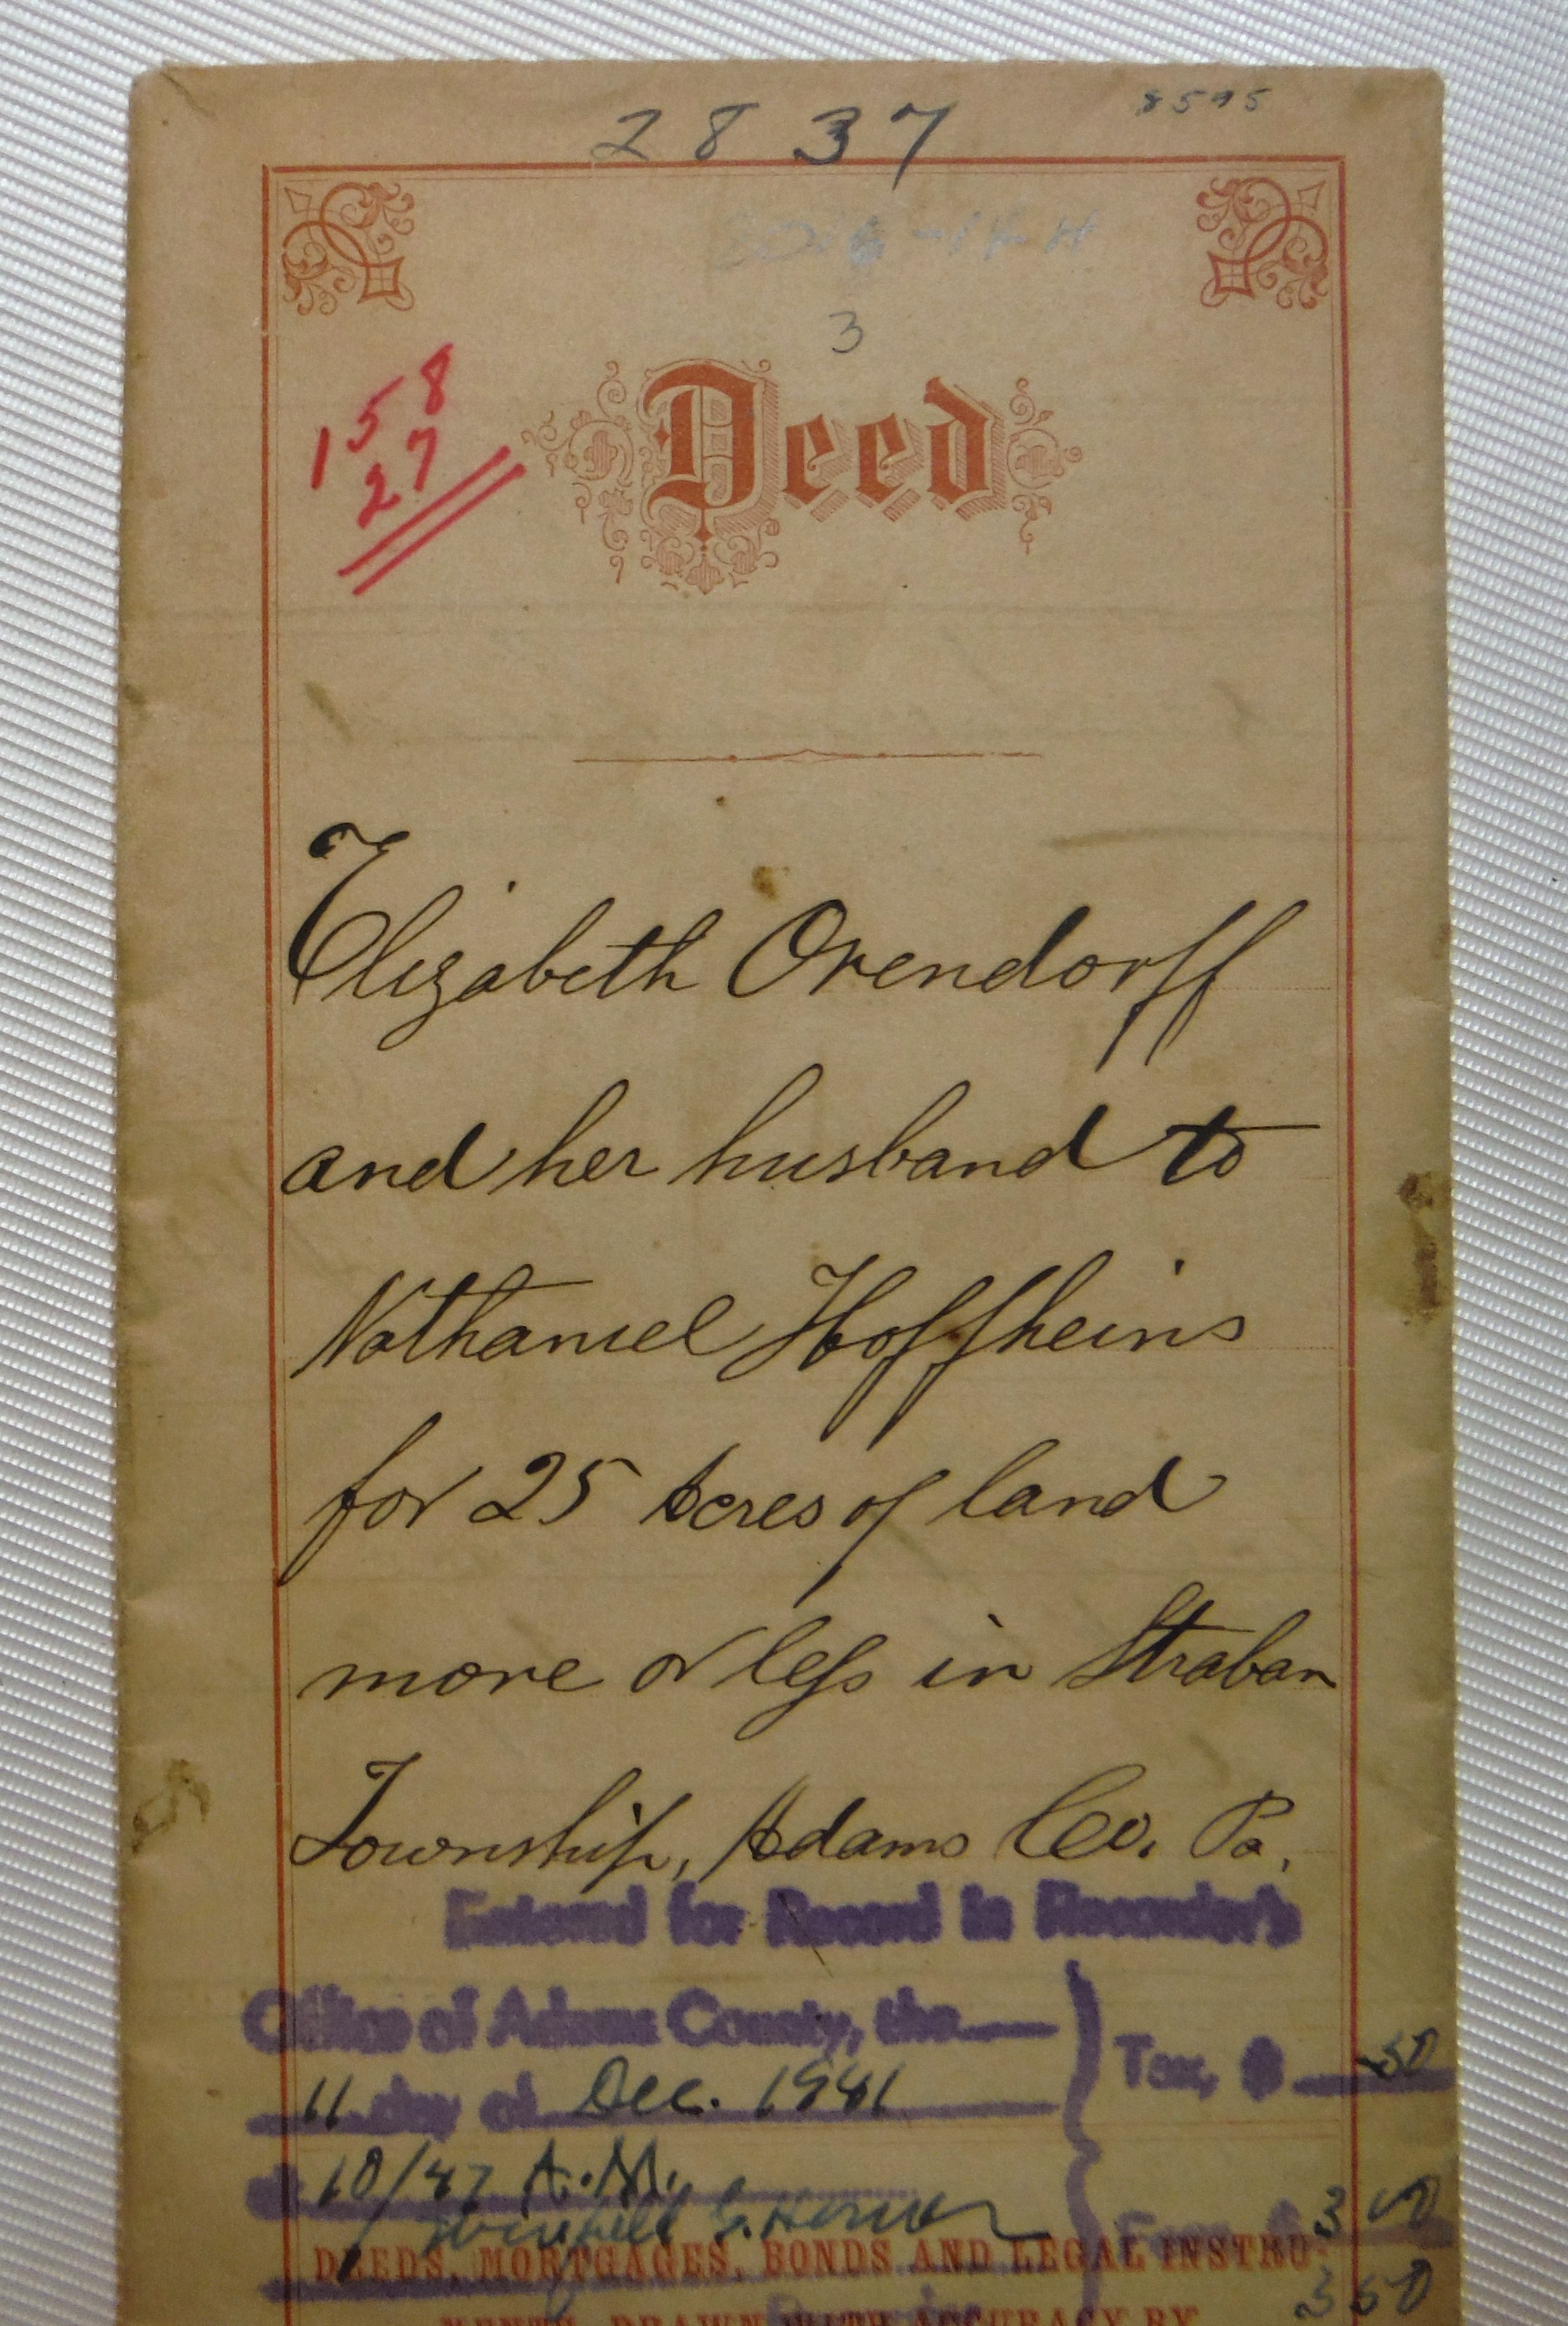 2837
8595
3
158
27
Deed
Elizabeth Orendorff
and her husband to
Nathaniel Hoffheins
for 25 Acres of land
more or less in Straban
Township, Adams Co. Pa.
Entered for Record in Recorder's
Office of Adams County, the
11 day of Dec. 1941
Tax, $ 50
at 10/47 A.M.
Winfield G. Horner
Fees, $ 3 00
DEEDS, MORTGAGES, BONDS AND LEGAL INSTRU-
3 50
MENTS, DRAWN WITH ACCURACY BY